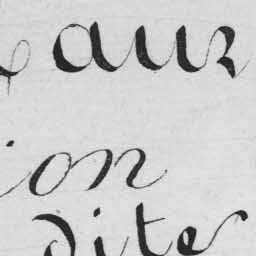 aux
ion
dite